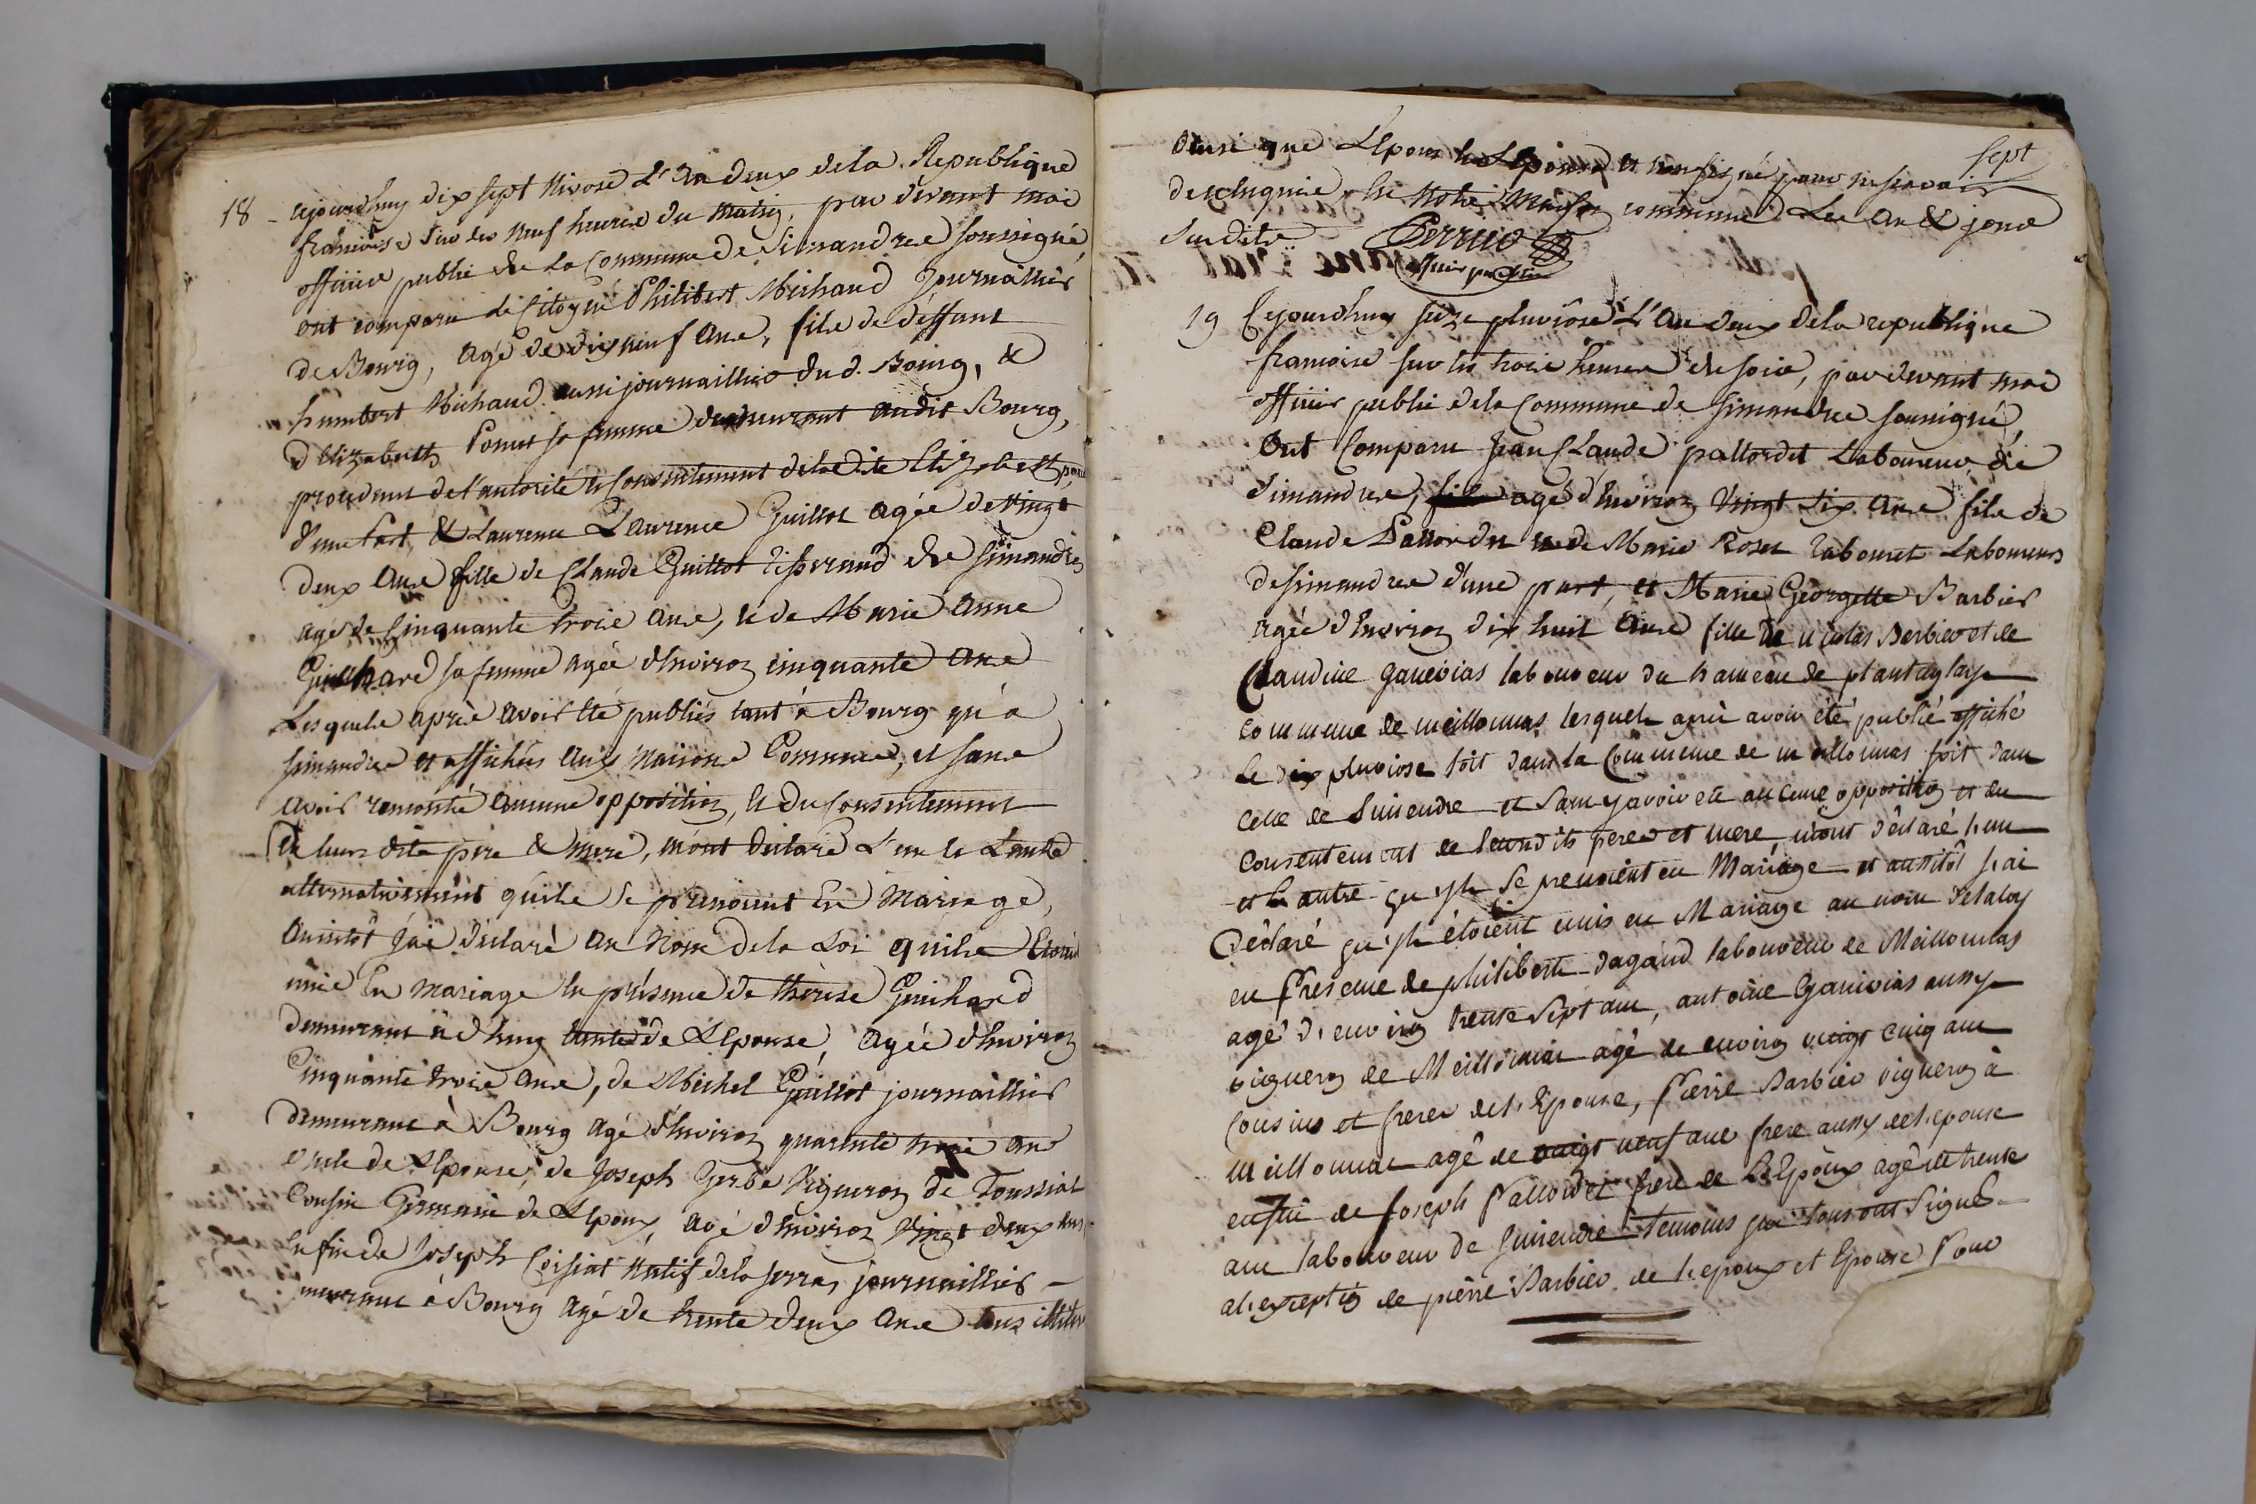 18 - cejourdhuy dix sept Nivose L'an deux dela Republique
francoise sur les neuf heures du matin, par devant moi
officier public de la Commune de Simandres soussigné,
ont comparu le Citoyen Philibert Michaud Journaillier
de Bourg, agé de dix neuf ans, fils de deffunt
humbert Michaud aussi journaillier du d. Bourg, &
d'Elizabeth Ponut sa femme demeurant audit Bourg,
procedant de l'autorité & consentement de ladite Elizabeth
d'une Part, & Laurence Laurence Guillot agée de vingt
deux ans fille de Claude Guillot tisserand de Simandres
agé de Cinquante trois ans, & de Marie Anne
Guichard sa femme agée d'Environ cinquante ans
Lesquels aprés avoir été publiés tant à Bourg qu'a
Simandre et affichés aux Maisons Commune, et sans
avoir remontré aucune opposition, & du Consentement
de leurs dits pere & mere, m'ont declaré L'un & Lautre
alternativement qu'ils se prenoient En Mariage,
aussitôt j'ai déclaré au Nom de la Loi quils Etoient
unis En mariage En présence de thérèse Guichard
demeurant à dhuys tante de L'Epouse, agée d'Environ
Cinquante trois ans, de Michel Guillot journaillier
demeurant à Bourg agé d'Environ quarante trois ans
oncle de L'Epouse, de Joseph Gerbe Vigneron de Toussiat
Cousin Germain de L'Epoux, agé d'Environ vingt deux ans
Enfin de Joseph Coissiat Natif de la serra, journaillier -
meurant à Bourg agé de trente deux ans tous illiter
sept
Ainsi que L'Epoux & L'Epouse, et non signé pour ne savoir
de ce enquis, En Notre Maison commune Les an & jour
Susdits.. Perruid
officier public
19 Cejourdhuy seize pluviôse L'an deux dela republique
francoise sur les trois heures de soir, par devant moi
officier public dela Commune de Simandre soussigné,
Ont Comparu Jean Claude pallordet Laboureur de
Simandres, fils agé d'Environ vingt six ans fils de
Claude Pallordet & de Marie Roset Labouret Laboureurs
de Simandres d'une part, et Marie Georgette Barbier
agée d'Environ dix huit ans fille de nicolas Berbier et de
Claudine ganivias laboureur du hameau de plantaglay
commune de meillonnas lesquels aprés avoir été publié affiché
le dix pluviose soit dans la Commune de meillonnas soit dans
celle de Simendre et sans y avoir eû aucune opposition et du
consentement de leursdits pere et mere, m'ont déclaré l'un
et l'autre qu'ils se prenoient en Mariage et aussitôt j'ai
Déclaré qu'ils étoient unis en Mariage au nom de la loy
en Présence de philiberte dagaud laboureur de Meillonnas
agé d'environ trente sept ans, antoine Ganivias aussy
vigneron de Meillonnas agé de environ vingt cinq ans
Cousins et frere de l'Epouse, Pierre Barbier vigneron à
meillonnas agé de vingt neuf ans frere aussy de l'epouse
enfin de Joseph Pallordet frere de L'Epoux agé de trente
ans laboureur de Simendre temoins qui tous ont Signé
al'exception de pierre Barbier de l'epoux et Epouse Pour